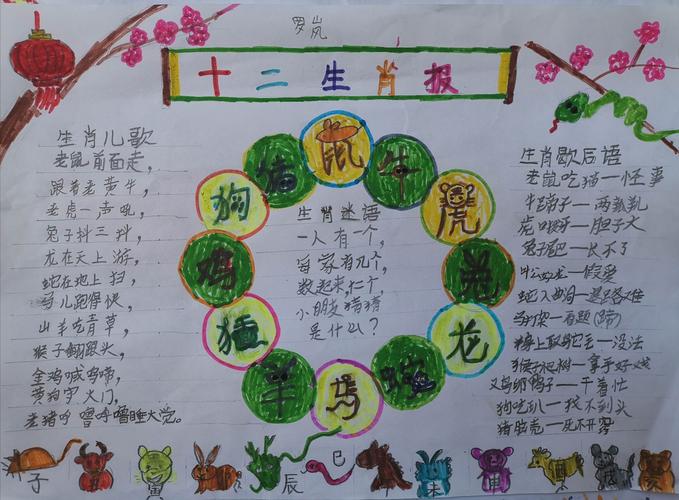 罗岚
十二生肖报
生肖儿歌
老鼠前面走，
跟着老黄牛，
老虎一声吼，
兔子抖三抖，
龙在天上游，
蛇在地上扫，
马儿跑得快，
山羊吃青草，
猴子翻跟头，
金鸡喊鸣啼，
黄狗守大门，
老猪呼噜呼噜睡大觉。
鼠
牛
虎
兔
龙
蛇
马
羊
猴
鸡
狗
猪
生肖迷语
一人有一个，
每家有几个，
数起来，仁个，
小朋友猜猜
是什么？
生肖歇后语
老鼠吃猫一怪事
牛蹄子一两瓣
虎 一胆子大
兔子尾巴一长不了
叶公好龙一假爱
蛇入 一退路难
马打架一看题(蹄)
一没法
猴子爬树一拿手好戏
一干着忙
狗吃 一找不到头
猪 一死不开
子
寅
辰
巳
未
申